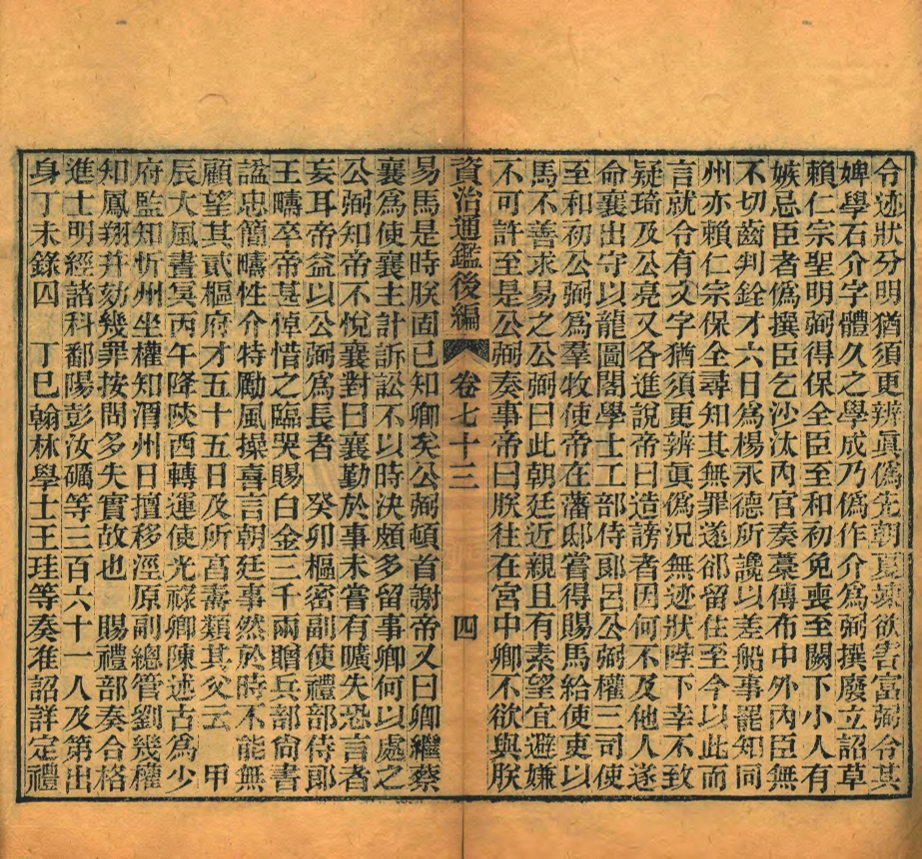 令迹狀分明猶須更辨眞僞先朝夏竦欲害富弼令其
婢學石介字體久之學成乃僞作介爲弼撰廢立詔草
賴仁宗聖明弼得保全臣至和初免喪至闕下小人有
嫉忌臣者僞撰臣乞沙汰內官奏藁傳布中外內臣無
不切齒判銓才六日爲楊永德所讒以差船事罷知同
州亦賴仁宗保全尋知其無罪遂卻留住至今以此而
言就令有文字猶須更辨眞僞況無迹狀陛下幸不致
疑琦及公亮又各進說帝曰造謗者因何不及他人遂
命襄出守以龍圖閣學士工部侍郞呂公弼權三司使
至和初公弼爲羣牧使帝在藩邸嘗得賜馬給使吏以
馬不善求易之公弼曰此朝廷近親且有素望宜避嫌
不可許至是公弼奏事帝曰朕往在宮中卿不欲與朕
資治通鑑後編 卷七十三 四
易馬是時朕固已知卿矣公弼頓首謝帝又曰卿繼蔡
襄爲使襄主計訴訟不以時決頗多留事卿何以處之
公弼知帝不悅襄對曰襄勤於事未嘗有曠失恐言者
妄耳帝益以公弼爲長者 癸卯樞密副使禮部侍郞
王疇卒帝甚悼惜之臨哭賜白金三千兩贈兵部尙書
諡忠簡疇性介特勵風操喜言朝廷事然於時不能無
顧望其貳樞府才五十五日及所享壽類其父云 甲
辰大風晝冥丙午降陝西轉運使光祿卿陳述古爲少
府監知忻州坐權知渭州日擅移涇原副總管劉幾權
知鳳翔幷劾幾罪按問多失實故也 賜禮部奏合格
進士明經諸科鄱陽彭汝礪等三百六十一人及第出
身丁未錄囚 丁巳翰林學士王珪等奏准詔詳定禮